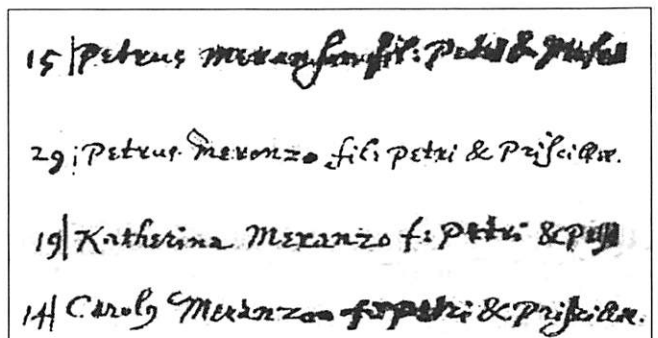 15 Petrus fil: &
29 Petrus Meronzo fil: Petri & Priscillæ.
19 Katherina Meranzo f: Petri &
14 Carolus Meranzo Petri & Priscillæ.